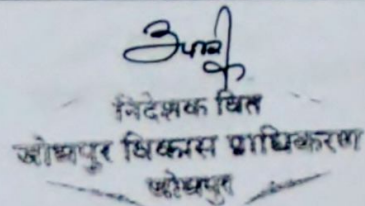 निदेशक वित
जोधपुर विकास प्राधिकरण
जोधपुर